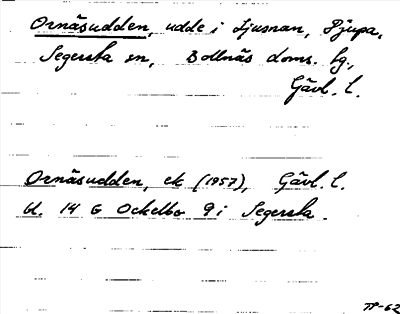 Ornäsudden, udde i Ljusnan, Djupa,
Segersta sn, Bollnäs doms. hg.,
Gävl. l.
Ornäsudden, ek (1957), Gävl. l.
bl. 14 G Ockelbo 9 i Segersta.
TP-62